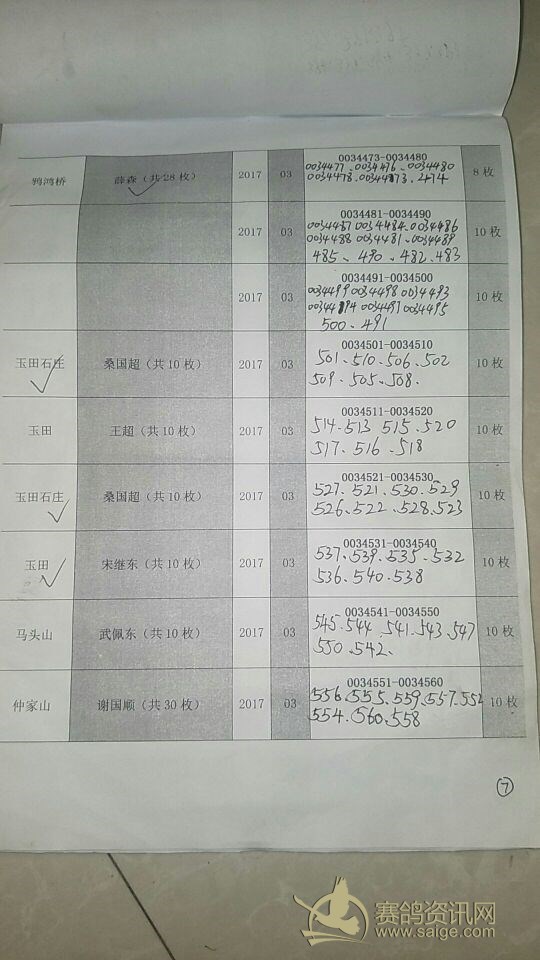 0034473-0034480
鸦鸿桥 薛森（共28枚） 2017 03 0034477、0034476、0034480 8枚
0034478、0034473、474
0034481-0034490
2017 03 0034487 0034484、0034486 10枚
0034488 0034481、0034489
485、490、482、483
0034491-0034500
2017 03 0034499 0034498 0034493 10枚
0034494 0034497 0034495
500、491
0034501-0034510
玉田石庄 桑国超（共10枚） 2017 03 501、510、506、502 10枚
509、505、508、
0034511-0034520
玉田 王超（共10枚） 2017 03 514、513 515、520 10枚
517、516、518
0034521-0034530
玉田石庄 桑国超（共10枚） 2017 03 527、521、530、529 10枚
526、522、528、523
0034531-0034540
玉田 宋继东（共10枚） 2017 03 537、539、535、532 10枚
536、540、538
0034541-0034550
马头山 武佩东（共10枚） 2017 03 545、544、541、543、547 10枚
550、542、
0034551-0034560
仲家山 谢国顺（共30枚） 2017 03 556、555、559、557、552 10枚
554、560、558
⑦
赛鸽资讯网
www.saige.com